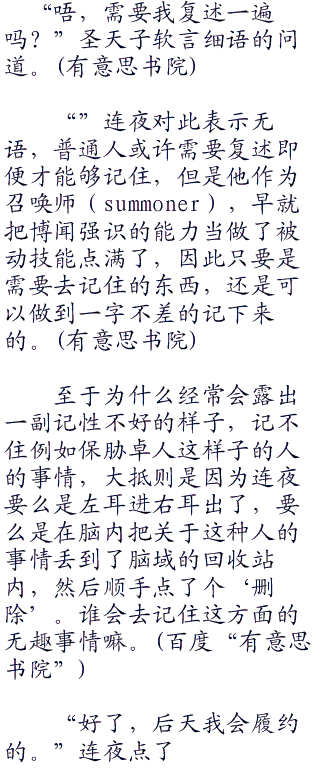 “唔，需要我复述一遍
吗？”圣天子软言细语的问
道。(有意思书院)
“”连夜对此表示无
语，普通人或许需要复述即
便才能够记住，但是他作为
召唤师（summoner），早就
把博闻强识的能力当做了被
动技能点满了，因此只要是
需要去记住的东西，还是可
以做到一字不差的记下来
的。(有意思书院)
至于为什么经常会露出
一副记性不好的样子，记不
住例如保胁卓人这样子的人
的事情，大抵则是因为连夜
要么是左耳进右耳出了，要
么是在脑内把关于这种人的
事情丢到了脑域的回收站
内，然后顺手点了个‘删
除’。谁会去记住这方面的
无趣事情嘛。(百度“有意思
书院”)
“好了，后天我会履约
的。”连夜点了